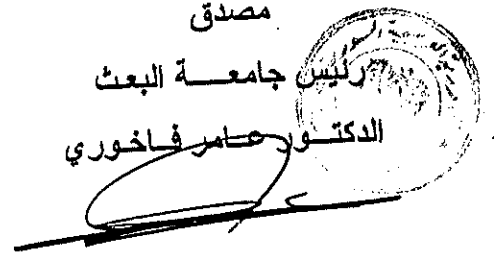 مصدق
رئيس جامعـــة البعث
الدكتــور عـامر فـاخـوري